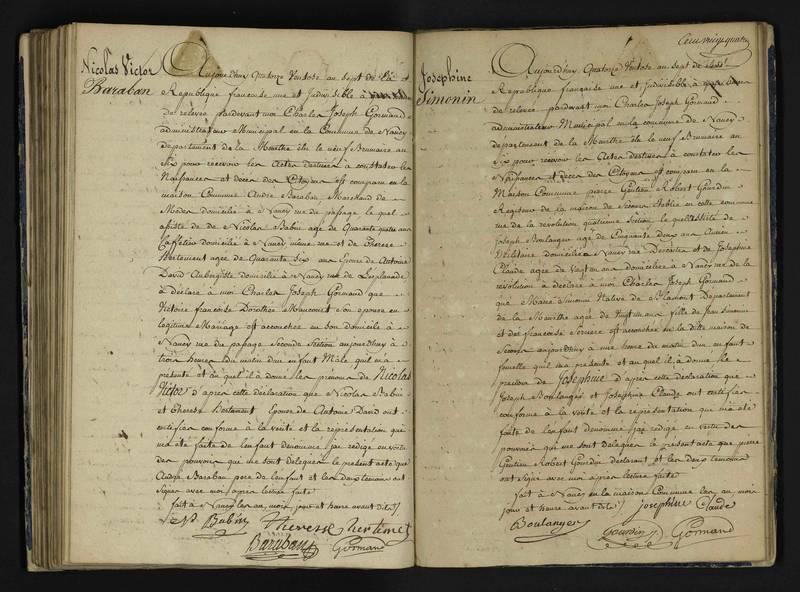 Nicolas Victor
Baraban
Aujourd'huy Quatorze Ventose an sept de la
Republique françoise une et Indivisible à
de relevée pardevant moi Charles Joseph Gormand
administrateur Municipal en la Commune de Nancy
departement de la Meurthe élu le neuf Brumaire an
Six pour recevoir les Actes destinés à constater les
Naissances et deces des Citoyens est comparu en la
maison Commune André Baraban Marchand de
Modes domicilié à Nancy rue du passage le quel
assisté de de Nicolas Babin agé de Quarante quatre ans
Caffetier domicilié à Nancy même rue et de Therese
Bertement agée de Quarante Six ans Epouse de Antoine
David Aubergiste domicilié à Nancy rue de l'esplanade
à déclaré à moi Charles Joseph Gormand que
Victoire françoise Dorothée Maucourt son epouse en
legitime Mariage est accouchée en son domicile à
Nancy rue du passage Seconde Section aujourd'huy à
trois heures du matin d'un enfant Mâle qui m'a
présenté et au quel il à donné les prénoms de Nicolas
Victor d'après cette déclaration que Nicolas Babin
et Therese Bertement Epouse de Antoine David ont
certifiée conforme à la vérité et la représentation que
m'a été faite de l'enfant dénommé j'ai redigé en vertu
des pouvoirs qui me sont delegués le présent acte que
André Baraban pere de l'enfant et les deux temoins ont
signé avec moi après lecture faite
fait à Nancy les an, mois, jour et heure avant dits
N. Babin Theresse Bertement
Baraban Gormand
Cent vingt quatre
Josephine
Simonin
Aujourd'huy Quatorze Ventose an sept de la
Republique françoise une et Indivisible à
de relevée pardevant moi Charles Joseph Gormand
administrateur Municipal en la commune de Nancy
departement de la Meurthe élu le neuf Brumaire an
Six pour recevoir les Actes destinés à constater les
Naissances et deces des Citoyens est comparu en la
Maison Commune pierre Gautier Robert Gourdin
Regisseur de la maison de Secours établie en cette commune
rue de la revolution quatrieme Section lequel assisté de
Joseph Boulanger agé de Cinquante deux ans Ancien
Militaire domicilié à Nancy rue et de Josephine
Claude agée de Vingt ans domiciliée à Nancy rue de la
revolution à déclaré à moi Charles Joseph Gormand
que Marie Simonin Native de Blamont Departement
de la Meurthe agée de Vingt ans fille de Jean Simonin
et de françoise est accouchée en la ditte maison de
Secours aujourd'huy à une heure du matin d'un enfant
femelle qui m'a présenté et au quel il à donné le
prenom de Josephine d'après cette déclaration que
Joseph Boulanger et Josephine Claude ont certifiée
conforme à la vérité et la représentation que m'a été
faite de l'enfant dénommé j'ai redigé en vertu des
pouvoirs qui me sont delegués le présent acte que pierre
Gautier Robert Gourdin déclarant et les deux temoins
ont signé avec moi après lecture faite
fait à Nancy en la maison Commune les an, mois
jour et heure avant dits josephine Claude
Boulanger
gourdin Gormand